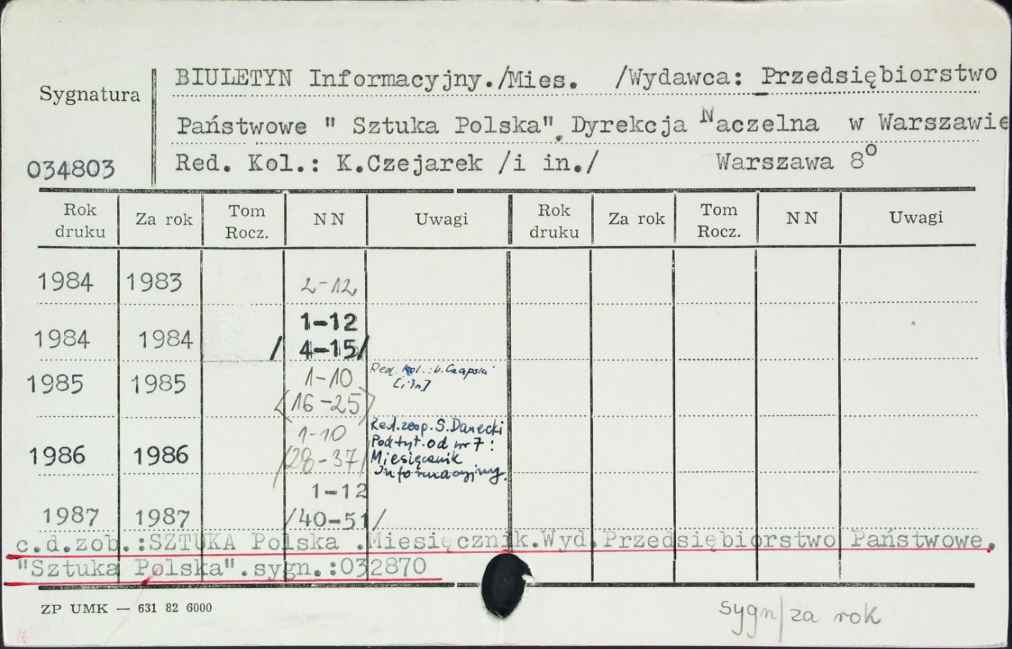 BIULETYN Informacyjny./Mies. /Wydawca: Przedsiębiorstwo
Sygnatura
Państwowe " Sztuka Polska". Dyrekcja Naczelna w Warszawie
034803 Red. Kol.: K.Czejarek /i in./ Warszawa 8°
Rok druku Za rok Tom Rocz. NN Uwagi Rok druku Za rok Tom Rocz. NN Uwagi
1984 1983 2-12
1-12
1984 1984 / 4-15/
1985 1985 1-10 Red. kol.: Czapski
(16-25) [i in]
1-10 Red. zesp. S. Danecki
Podtyt. od nr 7:
1986 1986 /28-37/ Miesięcznik
Informacyjny.
1-12
1987 1987 /40-51/
c.d.zob.:SZTUKA Polska .Miesięcznik.Wyd.Przedsiębiorstwo Państwowe.
"Sztuka Polska".sygn.:032870
ZP UMK — 631 82 6000
sygn/za rok